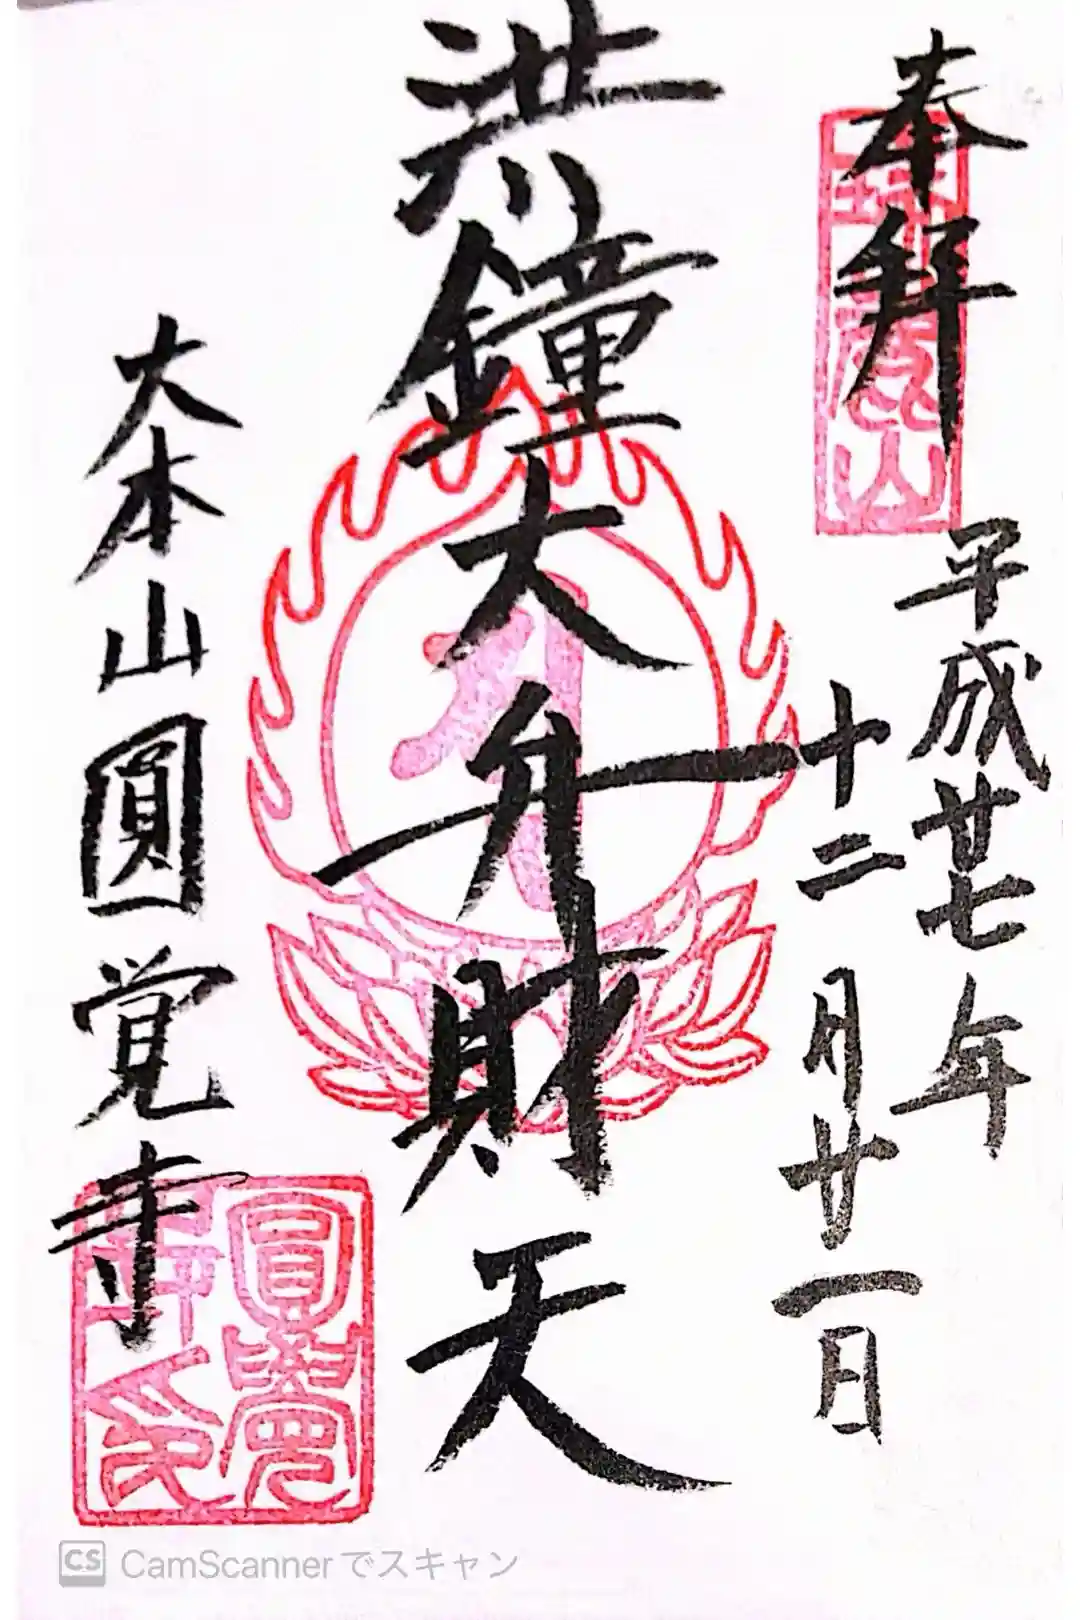 奉拝
平成廿七年
十二月廿一日
洪鐘大弁財天
大本山圓覚寺
圓覺
寺印
CS CamScannerでスキャン